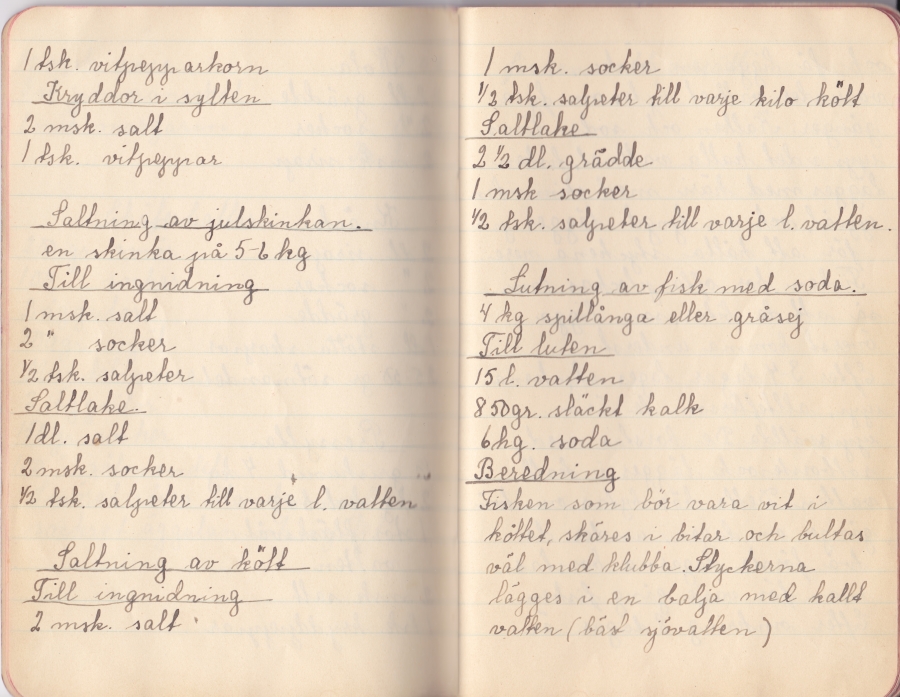 1 tsk. vitpepparkorn
Kryddor i sylten
2 msk. salt
1 tsk. vitpeppar
Saltning av julskinkan.
en skinka på 5-6 kg
Till ingnidning
1 msk. salt
2 " socker
1/2 tsk. salpeter
Saltlake.
1 dl. salt
2 msk. socker
1/2 tsk. salpeter till varje l. vatten
Saltning av kött
Till ingnidning
2 msk. salt
1 msk. socker
1/2 tsk. salpeter till varje kilo kött
Saltlake
2 1/2 dl. grädde
1 msk socker
1/2 tsk. salpeter till varje l. vatten.
Lutning av fisk med soda.
4 kg spillånga eller gråsej
Till luten
15 l. vatten
850gr. släckt kalk
6 hg. soda
Beredning
Fisken som bör vara vit i
köttet, skäres i bitar och bultas
väl med klubba. Styckerna
lägges i en balja med kallt
vatten (bäst sjövatten)